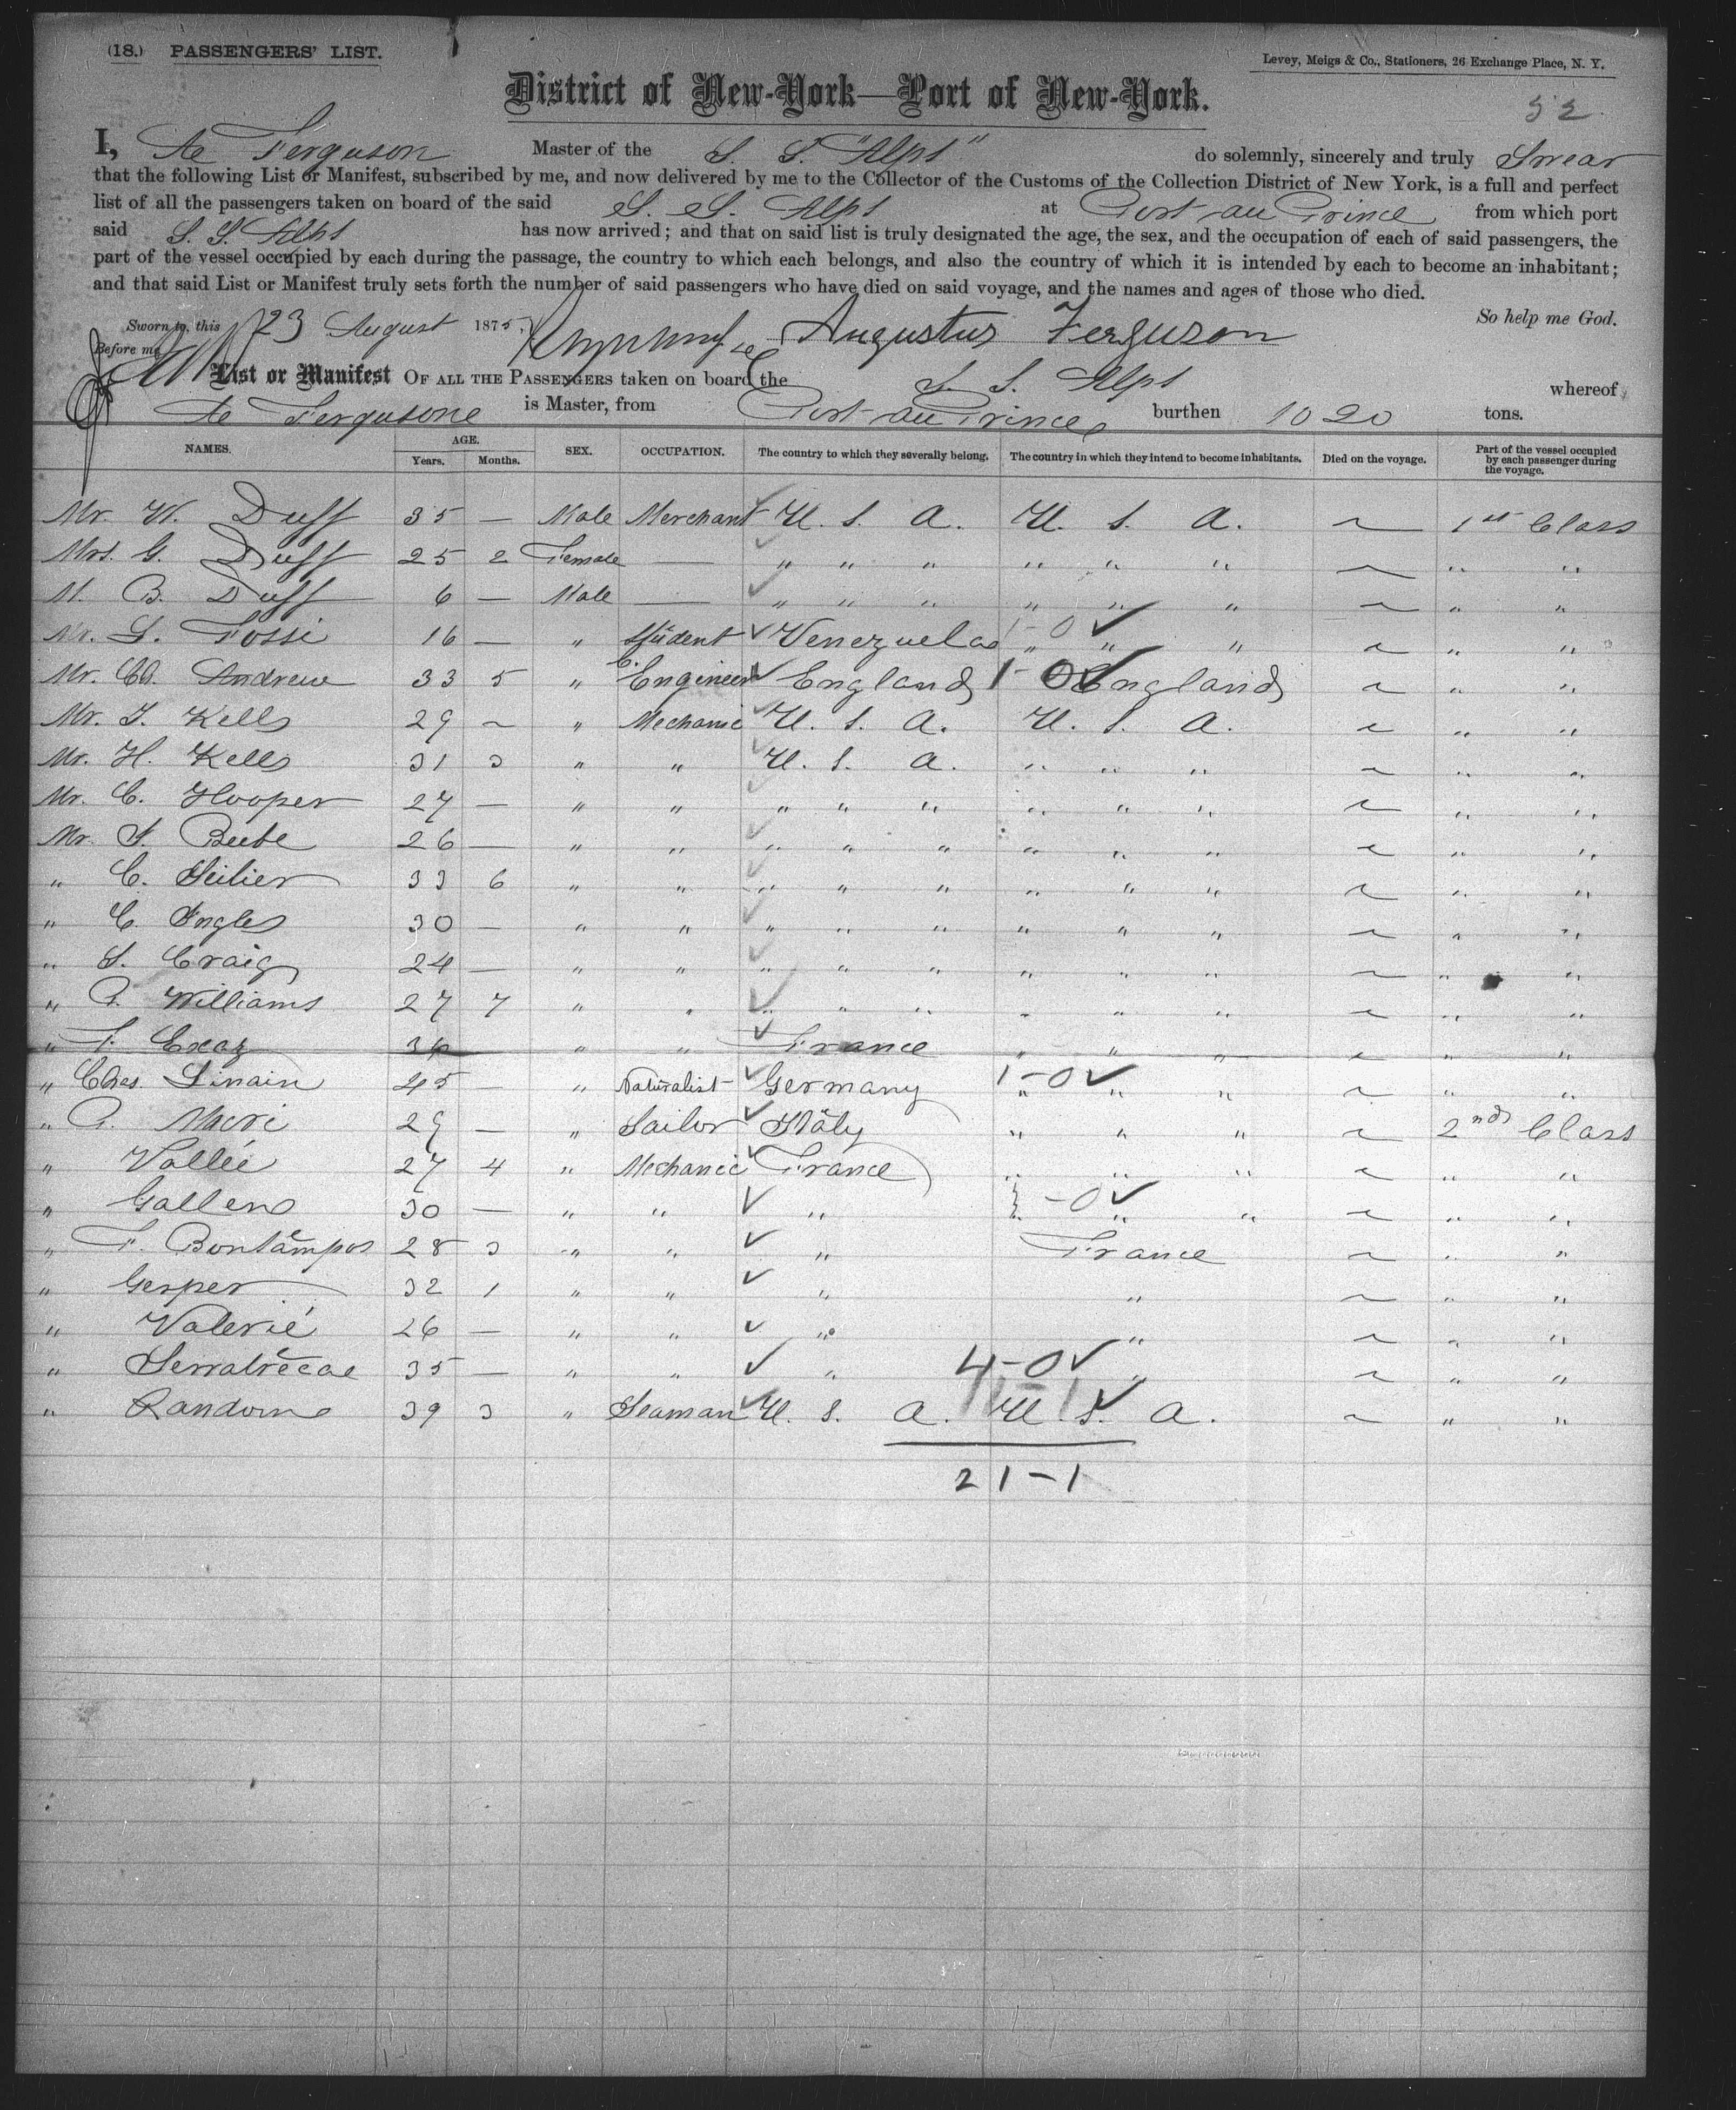 (18.) PASSENGERS' LIST.
Levey, Meigs & Co., Stationers, 26 Exchange Place, N. Y.
District of New-York—Port of New-York.
52
I, A Ferguson Master of the S. S. "Alps" do solemnly, sincerely and truly Swear
that the following List or Manifest, subscribed by me, and now delivered by me to the Collector of the Customs of the Collection District of New York, is a full and perfect
list of all the passengers taken on board of the said S. S. Alps at Port au Prince from which port
said S. S. Alps has now arrived; and that on said list is truly designated the age, the sex, and the occupation of each of said passengers, the
part of the vessel occupied by each during the passage, the country to which each belongs, and also the country of which it is intended by each to become an inhabitant;
and that said List or Manifest truly sets forth the number of said passengers who have died on said voyage, and the names and ages of those who died.
So help me God.
Sworn to, this 23 August 1875. Augustus Ferguson
Before me
List or Manifest OF ALL THE PASSENGERS taken on board the S. S. Alps whereof
A Fergusone is Master, from Port au Prince burthen 1020 tons.
NAMES. AGE. Years. Months. SEX. OCCUPATION. The country to which they severally belong. The country in which they intend to become inhabitants. Died on the voyage. Part of the vessel occupied by each passenger during the voyage.
Mr. W. Duff 35 — Male Merchant U. S. A. U. S. A. 1st Class
Mrs. G. Duff 25 2 Female — " " " " " " " "
B. Duff 6 — Male — " " " " " " " "
Mr. L. Fossi 16 — " Student Venezuela 1-0 " " " " "
Mr. Andrew 33 5 " C. Engineer England 1-0 England " "
Mr. Kells 29 " Mechanic U. S. A. U. S. A. " "
Mr. H. Kells 31 3 " " U. S. A. " " " " "
Mr. C. Hooper 27 — " " " " " " " " " "
Mr. Beebe 26 — " " " " " " " " " "
" C. Seilier 33 6 " " " " " " " " " "
" C. Ingles 30 — " " " " " " " " " "
" S. Craig 24 — " " " " " " " " " "
" Williams 27 7 " " " " " " " " " "
" F. 36 " " France " " " " "
" Chas. Linain 45 — " Naturalist Germany 1-0 " " " " "
" Macri 29 — " Sailor Italy " " " 2nd Class
" Vallée 27 4 " Mechanic France " " " " "
" Gallens 30 — " " " -0 " " " "
" F. Bontampos 28 3 " " " France " "
" Gesper 32 1 " " " " " "
" Valerié 26 — " " " " " "
" 35 — " " " 4-0 " " "
" Randome 39 3 " Seaman U. S. A. U. S. A. " "
21-1